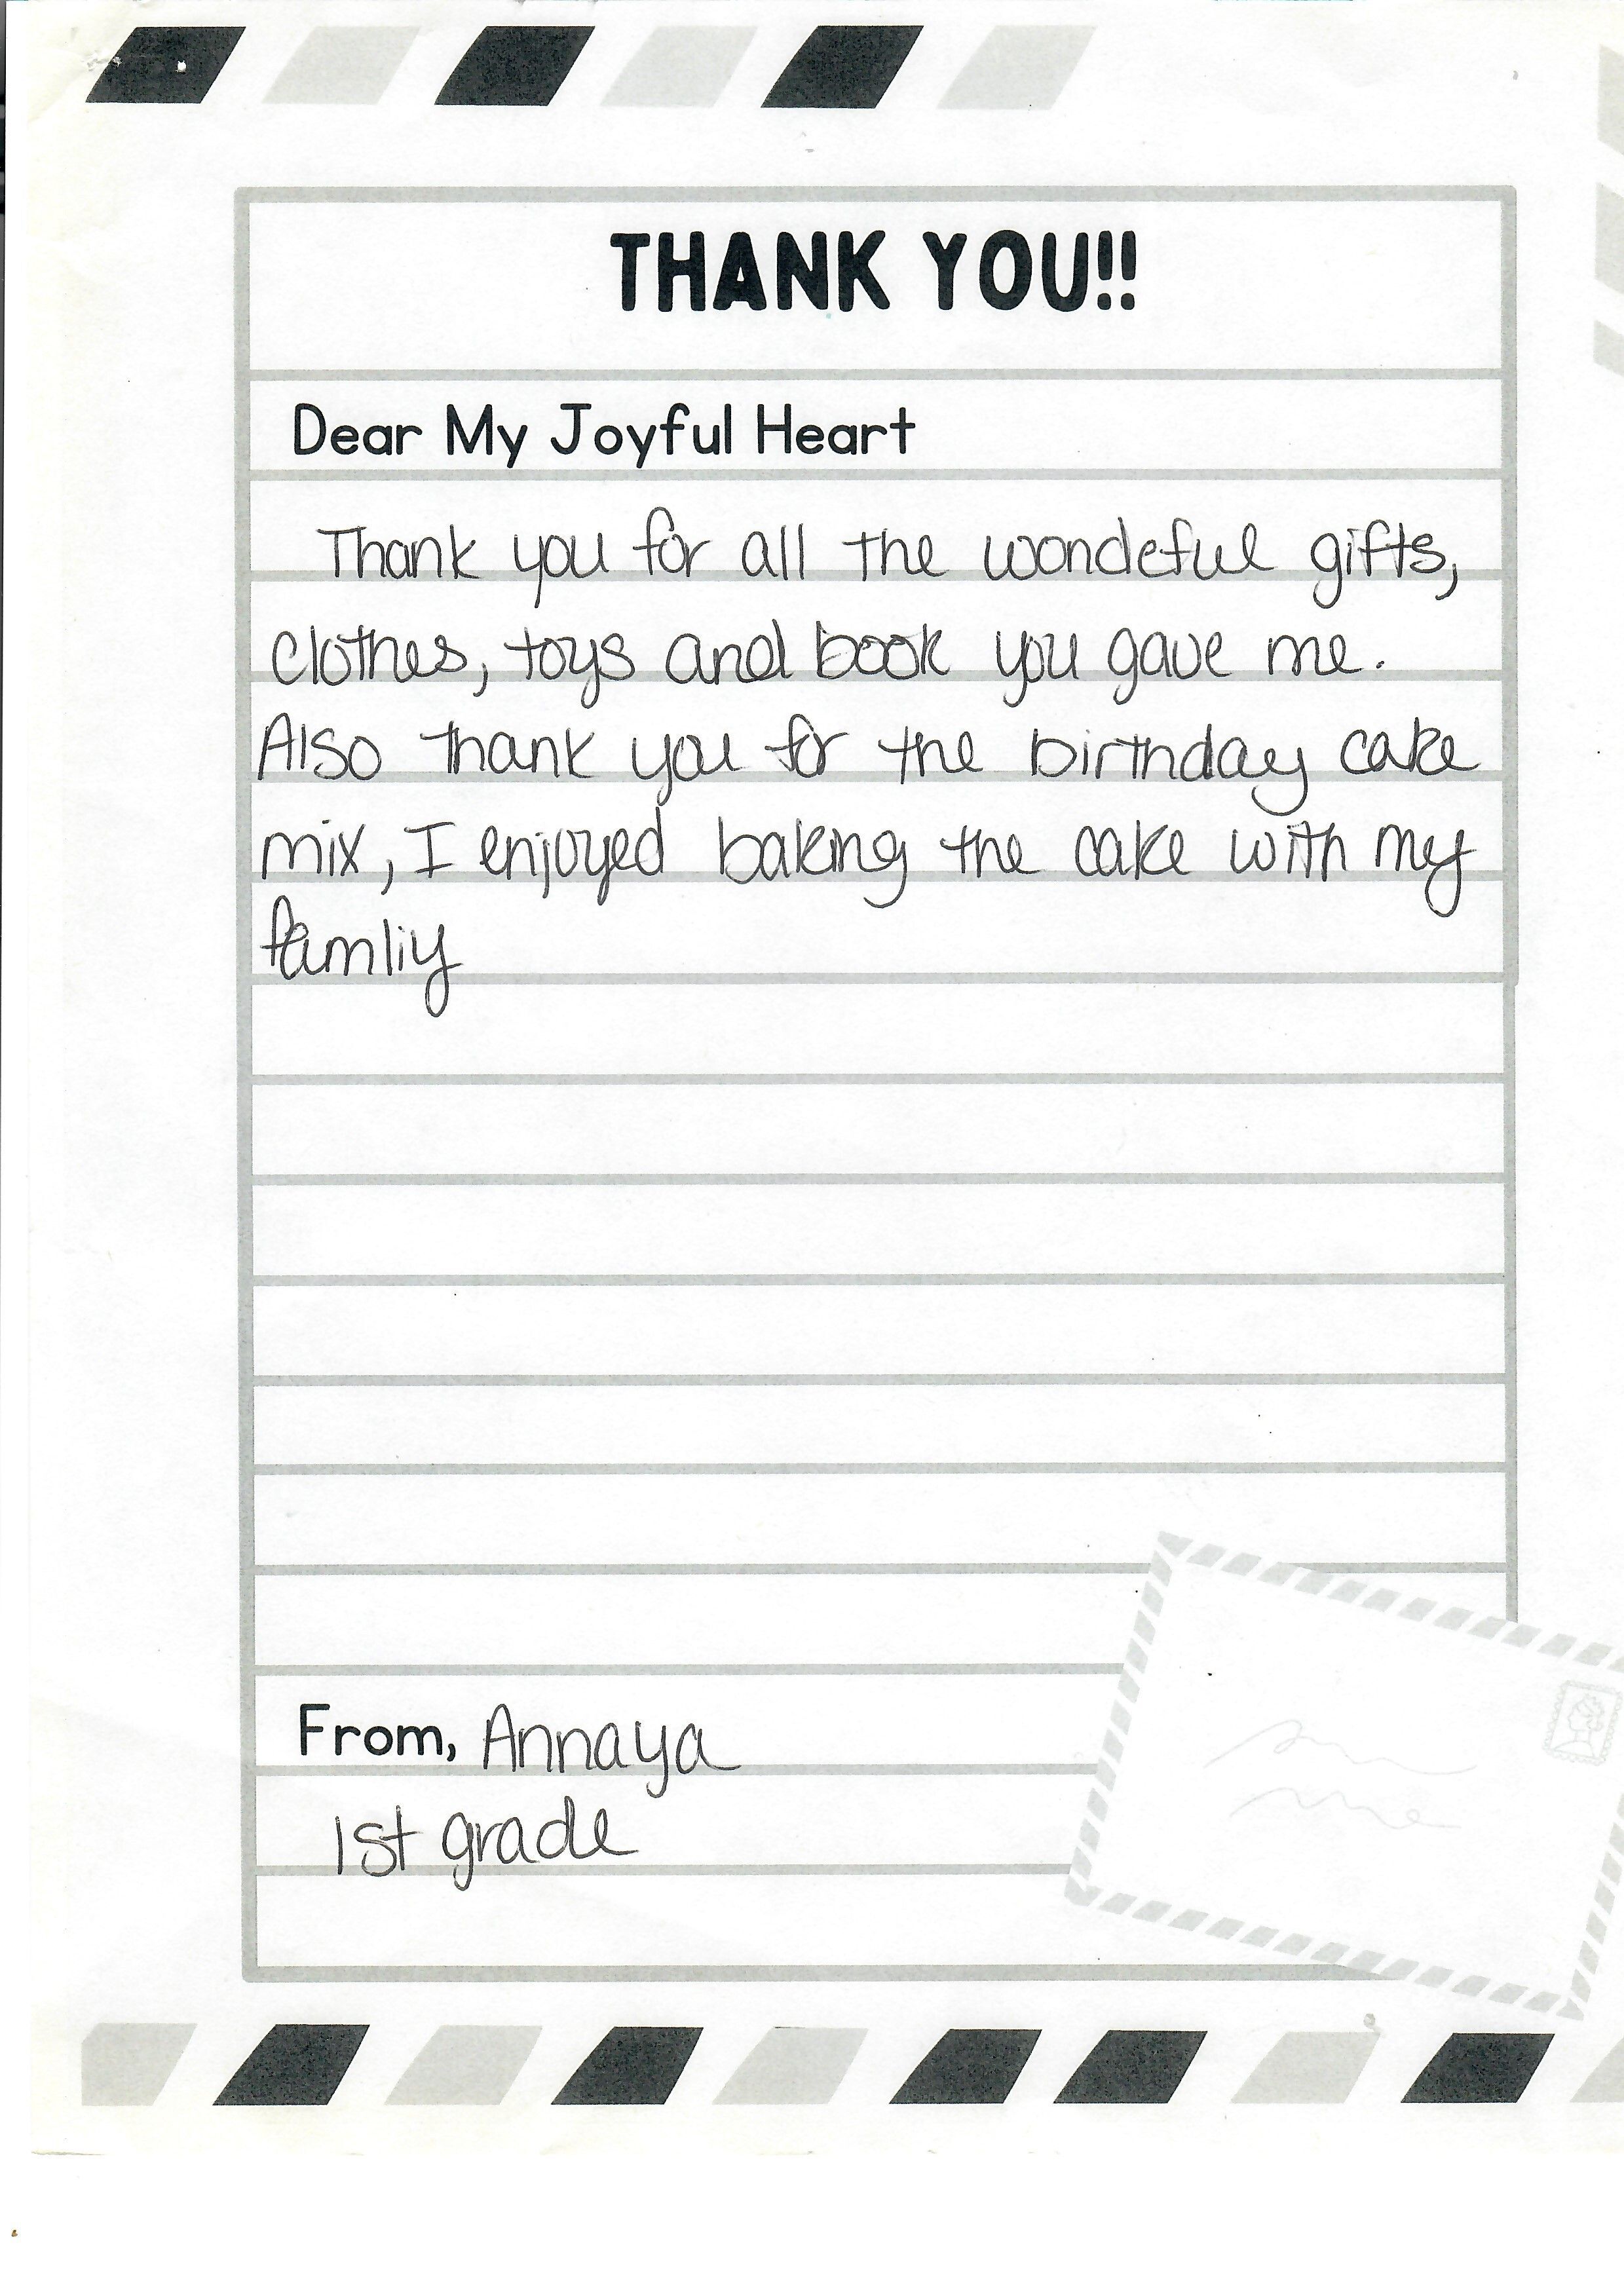 THANK YOU!!
Dear My Joyful Heart
Thank you for all the wondeful gifts,
clothes, toys and book you gave me.
Also thank you for the birthday cake
mix, I enjoyed baking the cake with my
famliy
From, Annaya
1st grade